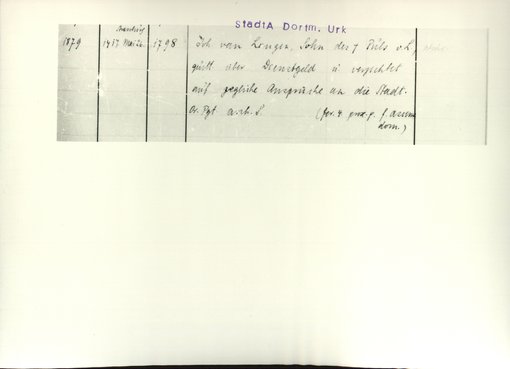 StadtA Dortm. Urk
1879
1417 März 1798 Joh. van Lengen, Sohn des † Rüls v. L.
quitt. über Dienstgeld u. verzichtet
auf jegliche Ansprüche an die Stadt.
Or. Pgt. a. rh. S. (fer. 4 prox. p. f. assum
dom.)